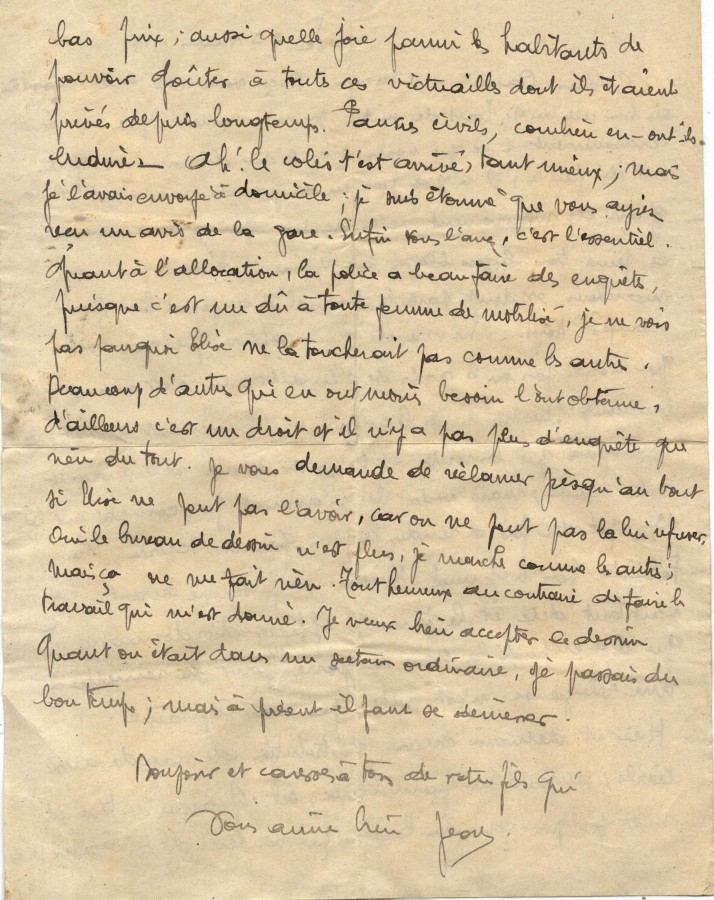 bas prix ; aussi quelle joie parmi les habitants de
pouvoir goûter à toutes ces victuailles dont ils étaient
privés depuis longtemps. Pauvres civils, combien en-ont-ils
endurés Ah ! le colis t'est arrivé, tant mieux ; mais
je l'avais envoyé à domicile ; je suis étonné que vous ayiez
reçu un avis de la gare. Enfin vous l'avez, c'est l'essentiel.
Quant à l'allocation, la police a beau faire des enquêtes,
puisque c'est un dû à toute femme de mobilisé, je ne vois
pas pourquoi Elise ne la toucherait pas comme les autres.
Beaucoup d'autres qui en ont moins besoin l'ont obtenue,
d'ailleurs c'est un droit et il n'y a pas plus d'enquête que
rien du tout. Je vous demande de réclamer jusqu'au bout
si Elise ne peut pas l'avoir, car on ne peut pas la lui refuser.
Oui le bureau de dessin n'est plus, je marche comme les autres ;
mais ça ne me fait rien. Tout heureux au contraire de faire le
travail qui m'est donné. Je veux bien accepter le dessin
quand on était dans un secteur ordinaire, je passais du
bon temps ; mais à présent il faut se démener.
Bonjour et caresses à tous de votre fils qui
Vous aime bien Jean.